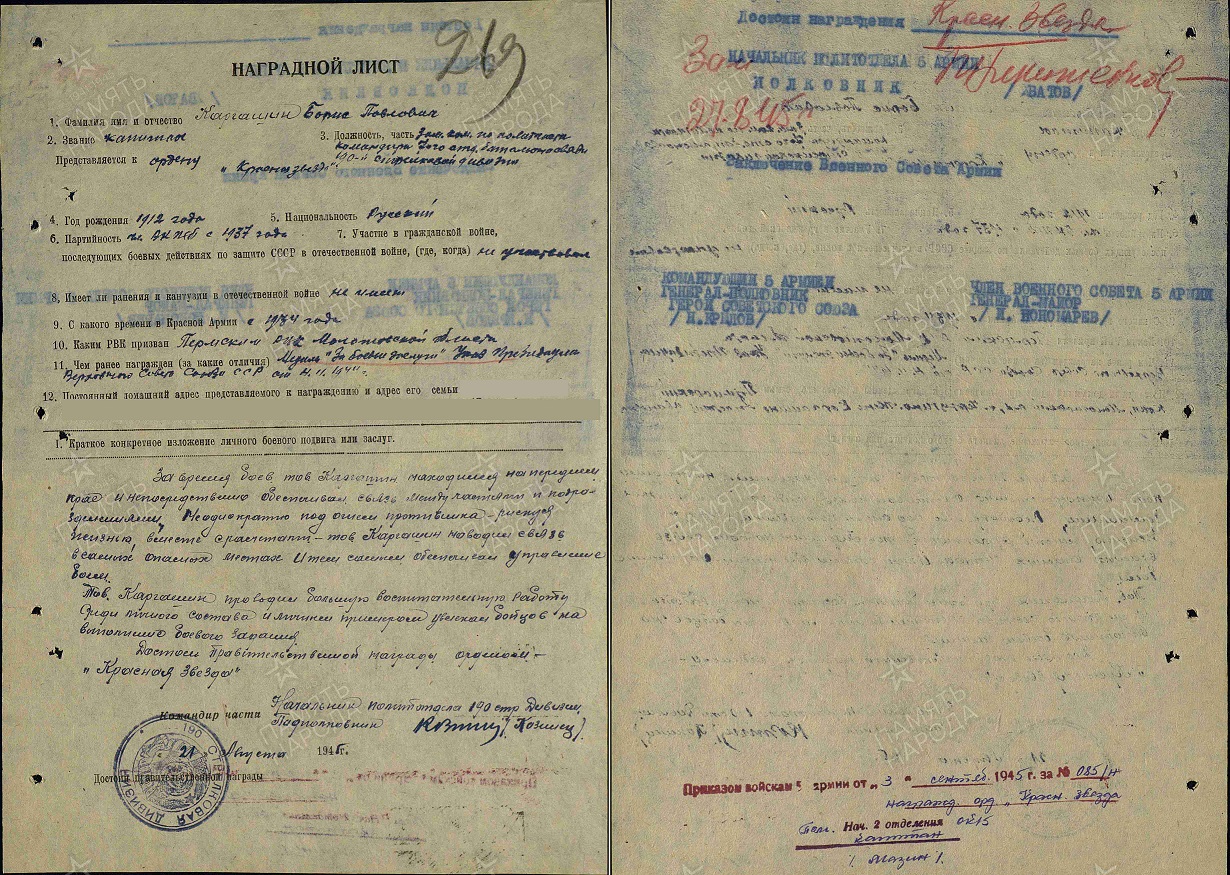 219
НАГРАДНОЙ ЛИСТ
1. Фамилия имя и отчество Каргашин Борис Павлович
2. Звание капитан 3. Должность, часть Зам. ком. по политчасти
командира отд. батальона связи
Представляется к ордену 190-й стрелковой дивизии
„Красная звезда"
4. Год рождения 1912 года 5. Национальность Русский
6. Партийность чл. ВКПб с 1937 года 7. Участие в гражданской войне,
последующих боевых действиях по защите СССР в отечественной войне, (где, когда) не участвовал
8. Имеет ли ранения и кантузии в отечественной войне не имеет
9. С какого времени в Красной Армии с 1934 года
10. Каким РВК призван Пермским РВК Молотовской области
11. Чем ранее награжден (за какие отличия) Медаль "За боевые заслуги" Указ Президиума
Верховного Совета Союза ССР от
12. Постоянный домашний адрес представляемого к награждению и адрес его семьи
1. Краткое конкретное изложение личного боевого подвига или заслуг.
За время боев тов Каргашин находился на переднем
крае и непосредственно обеспечивал связь между частями и подра-
зделениями. Неоднократно под огнем противника – рискуя
жизнью, вместе с расчетами – тов Каргашин наводил связь
в самых опасных местах и тем самым обеспечивал управление
боем.
Тов. Каргашин проводил большую воспитательную работу
среди личного состава и личным примером увлекал бойцов на
выполнение боевого задания.
Достоин правительственной награды орденом –
„Красная Звезда"
Командир части Начальник политотдела 190 стр Дивизии
Подполковник / Козинец /
21 Августа 1945 г.
190 СТРЕЛКОВАЯ ДИВИЗИЯ
Достоин правительственной награды
Достоин награждения Красн. Звезда
НАЧАЛЬНИК ПОЛИТОТДЕЛА 5 АРМИИ
Зам
ПОЛКОВНИК
/ВАТОВ/
27.8.45г
Заключение Военного Совета Армии
КОМАНДУЮЩИЙ 5 АРМИЕЙ
ГЕНЕРАЛ-ПОЛКОВНИК
ГЕРОЙ СОВЕТСКОГО СОЮЗА
/Н. КРЫЛОВ/
ЧЛЕН ВОЕННОГО СОВЕТА 5 АРМИИ
ГЕНЕРАЛ-МАЙОР
/И. ПОНОМАРЕВ/
Приказом войскам 5 армии от „3" сентяб. 1945 г. за № 085/н
награжд. орд. „Красн. звезда
Нач. 2 отделения ОК15
капитан
/. Мазин /.
ПАМЯТЬ НАРОДА